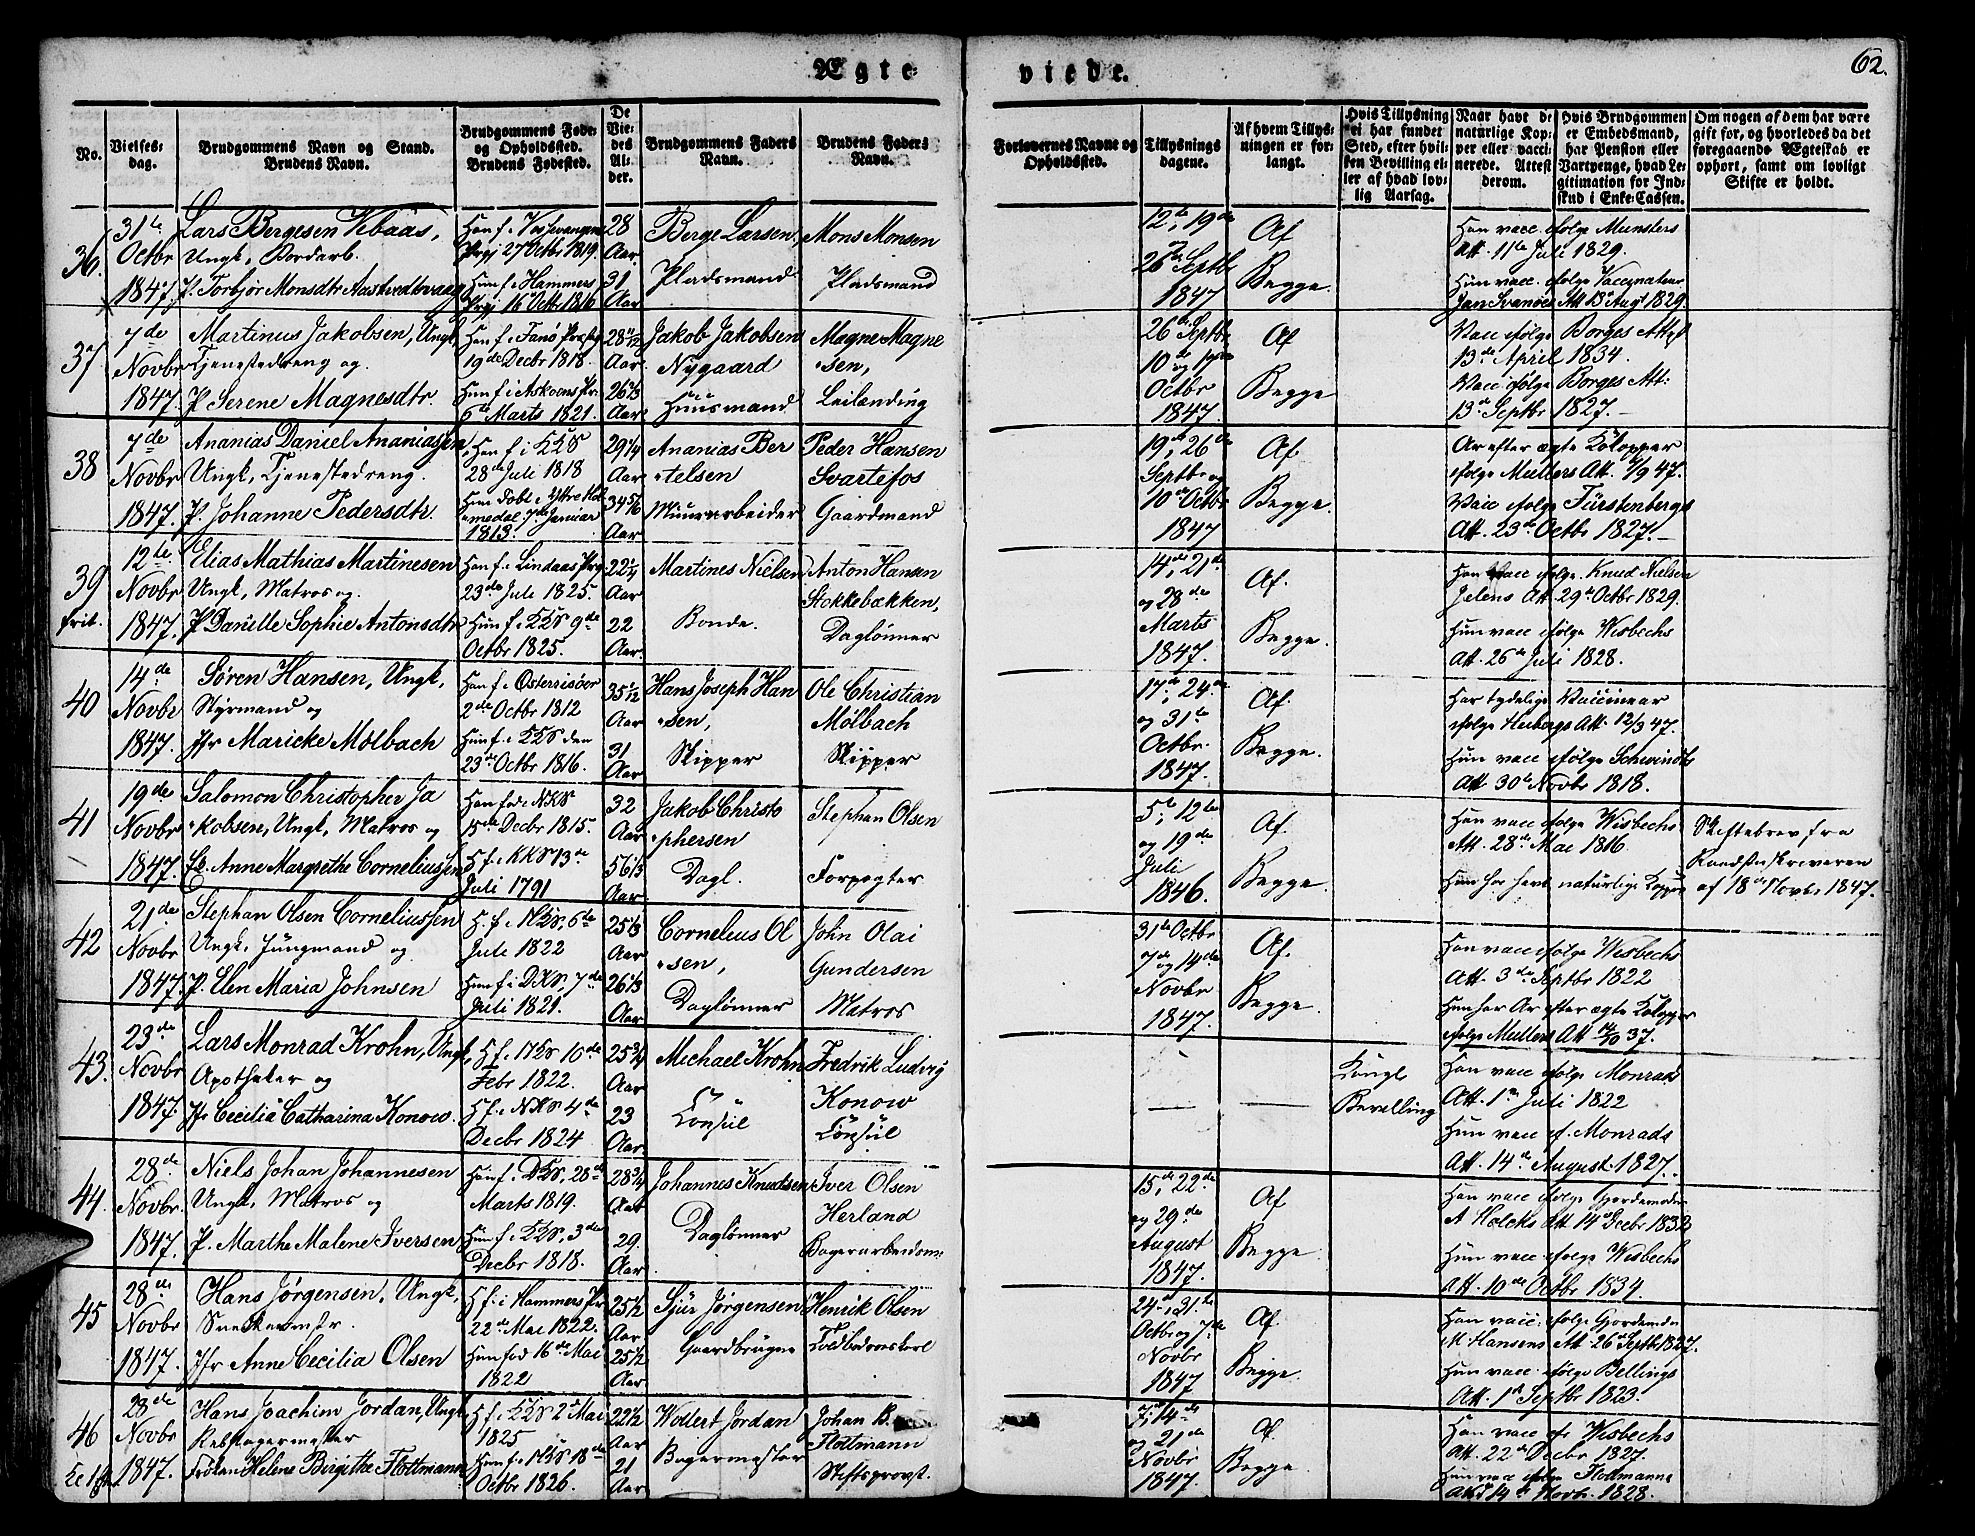 Ægte
viede.
62.
No.
Vielses-
dag.
Brudgommens Navn og Stand.
Brudens Navn.
Brudgommens Føde-
og Opholdssted.
Brudens Fødested.
De
Vie-
des
Al-
der.
Brudgommens Faders
Navn.
Brudens Faders
Navn.
Forlovernes Navne og
Opholdssted.
Tillysnings
dagene.
Af hvem Tillys-
ningen er for-
langt.
Hvis Tillysning
ei har fundet
Sted, efter hvil-
ken Bevilling el-
ler af hvad lov-
lig Aarsag.
Naar havt de
naturlige Kop-
per eller vacci-
nerede. Attest
derom.
Hvis Brudgommen
er Embedsmand,
har Pension eller
Vartpenge, hvad Le-
gitimation for Ind-
skud i Enke-Cassen.
Om nogen af dem har være
gift før, og hvorledes da det
foregaaende Ægteskab er
ophørt, samt om lovligt
Skifte er holdt.
36.
31te
Octbr
1847
Lars Bergesen Vebaas,
Ungk. Bordarb.
P. Torbjør Monsdtr Aastvedtvang
Han f. i Vossevangens
Prgj 27 Octbr 1819.
Hun f. i Hammers
Prgj 16 Octbr 1816
28
Aar
31
Aar
Berge Larsen
Pladsmand
Mons Monsen
Pladsmand
12te, 19de
26 Septbr
1847
Af
Begge
Han vacc. ifølge Munsters
Att. 11te Juli 1829.
Hun vacc. ifølge Vaccinateur
Jan Svanøes Att 13 Augt 1829
37
7de
Novbr
1847
Martinus Jakobsen, Ungk.
Tjenestedreng og
P. Serene Magnesdtr.
Han f. i Fanø Præstg
19de Decbr 1818.
Hun f. i Askøens Pr.
6te Marts 1821.
28 11/12
Aar
26 2/3
Aar
Jakob Jakobsen
Nygaard
Huusmand
Magne Magne
-sen,
Leilending
26 Septbr
10de og 17de
Octbr
1847
Af
Begge
Vacc ifølge Borges Attest
13de April 1834.
Vacc ifølge Borges Att:
13de Septbr 1827.
38
7de
Novbr
1847.
Ananias Daniel Ananiassen
Ungk, Tjenestedreng.
P. Johanne Pedersdtr.
Han f. i KKS
28de Juli 1818
Hun døbt i Yttre Hol
-medal 7de Januar
1813.
29 1/4
Aar
34 5/6
Aar
Ananias Ber
-telsen
Muurarbeider
Peder Hansen
Svartefos
Gaardmand
19de, 26de
Septbr og
10de Octbr
1847
Af
Begge
Ar efter ægte Kokopper
ifølge Mullers Att. 9/9 47.
Vacc ifølge Fürstenbergs
Att. 23de Octbr 1827.
39
frit.
12te
Novbr
1847.
Elias Mathias Martinesen
Ungk, Matros og
P. Danielle Sophie Antonsdtr
Han f. i Lindaas Prg.
23de Juli 1825.
Hun f. i KKS 9de
Octbr 1825.
22 1/4
Aar
22
Aar.
Martines Nielsen
Bonde.
Anton Hansen
Stokkebækken,
Daglønner
14de, 21de
og 28de
Marts
1847.
Af.
Begge.
Han vacc ifølge Knud Nielsen
Jelens Att 29de Octbr 1829.
Hun vacc ifølge Wisbechs
Att. 26de Juli 1828.
40
14de
Novbr
1847.
Søren Hansen, Ungk,
Styrmand og
Jfr Maricke Mölbach
Han f. i Østerrisøer
2de Octbr 1812
Hun f. i KKS den
23de Octbr 1816.
35 1/12
Aar
31
Aar
Hans Joseph Han
-sen,
Skipper
Ole Christian
Mölbach
Skipper
17de, 24de
og 31te
Octbr.
1847.
Af.
Begge.
Har tydelige Vaccinear
ifølge Heibergs Att. 12/9 47.
Hun vacc ifølge Schwindts
Att 30te Novbr 1818.
41
19de
Novbr
1847.
Salomon Christopher Ja
-kobsen, Ungk, Matros og
E. Anne Margrethe Corneliussen
Han fød i NKS
15de Decbr 1815.
H f. i KKS 13de
Juli 1791
32
Aar
56 1/3
Aar
Jakob Christo
-phersen
Dagl.
Stephan Olsen
Forpagter
5te, 12te
og 19de
Juli
1846
Af.
Begge.
Han vacc ifølge Wisbechs
Att. 28de Mai 1816
Hun har havt naturlige Kopper
Skiftebrev fra
af 18de Novbr 1847.
42
21de
Novbr
1847.
Stephan Olsen Corneliussen
Ungk. Jüngmand og
P. Elen Maria Johnsen
H. f. i NKS, 6te
Juli 1822
Hun f. i DKS, 7de
Juli 1821.
25 1/3
Aar
26 1/3
Aar
Cornelius Ol
-sen,
Daglønner
John Olai
Gundersen
Matros
31te Octbr
7de og 14de
Novbr
1847.
Af.
Begge
Han vacc ifølge Wisbechs
Att. 3de Septbr 1822
Hun har Ar efter ægte Kokopper
ifølge Mullers Att 37.
43.
23de
Novbr
1847.
Lars Monrad Krohn, Ungk,
Apotheker og
Jfr Cecilia Catharina Konow.
H f. i NKS 10de
Febr 1822.
H f. i NKS 4de
Decbr 1824
25 3/4
Aar
23
Aar
Michael Krohn
Consül
Fredrik Ludvig
Konow
Consül
— —
Kongl
Bevilling
Han vacc ifølge Monrads
Att. 1te Juli 1822
Hun vacc if. Monrads
Att. 14de August 1827.
44.
28de
Novbr.
1847.
Niels Johan Johannesen
Ungk, Matros og
P. Marthe Malene Iversen
Han f. DKS, 28de
Marts 1819.
Hun f. i KKS, 3de
Decbr 1818.
28 3/4
Aar
29.
Aar
Johannes Knudsen
Daglønner
Iver Olsen
Herland
15de, 22de
og 29de
August
1847.
Af
Begge.
Han vacc ifølge Gjordemoder
A Holcks Att 14 Decbr 1832
Hun vacc ifølge Wisbechs
Att. 10de Octbr 1834.
45
28de
Novbr
1847.
Hans Jørgensen, Ungk,
Snedkermstr.
Jfr Anne Cecilia Olsen
H f. i Hammers Pr
22de Mai 1822.
Hun fød 16de Mai
1822
25 1/2
Aar
25 1/2
Aar
Sjur Jørgensen
Gaardbruger
Henrik Olsen
24de, 31te
Octbr og 7de
Novbr
1847
Af.
Begge.
Han vacc. ifølge Gjordemdr
M Hansens Att 26de Septbr 1827.
Hun vacc. ifølge Bellings
Att. 1de Septbr 1823.
46
28de
Novbr
1847.
Hans Joachim Jordan, Ungk
Rebslagermester
Frøken Helene Birgithe Flottmann
H f. i KKS 2 Mai
1825
Hun f. i NKS 18de
Octbr 1826
22 1/2
Aar
21
Aar
Wollert Jordan
Bagermester
Johan B.
Flottmann
Stiftsprovst.
7, 14de
og 21de
Novbr
1847.
Af.
Begge
Han vacc if. Wisbechs
Att. 22de Decbr 1827.
Hun vacc ifølge Flottmanns
Att 14 Novbr. 1828.